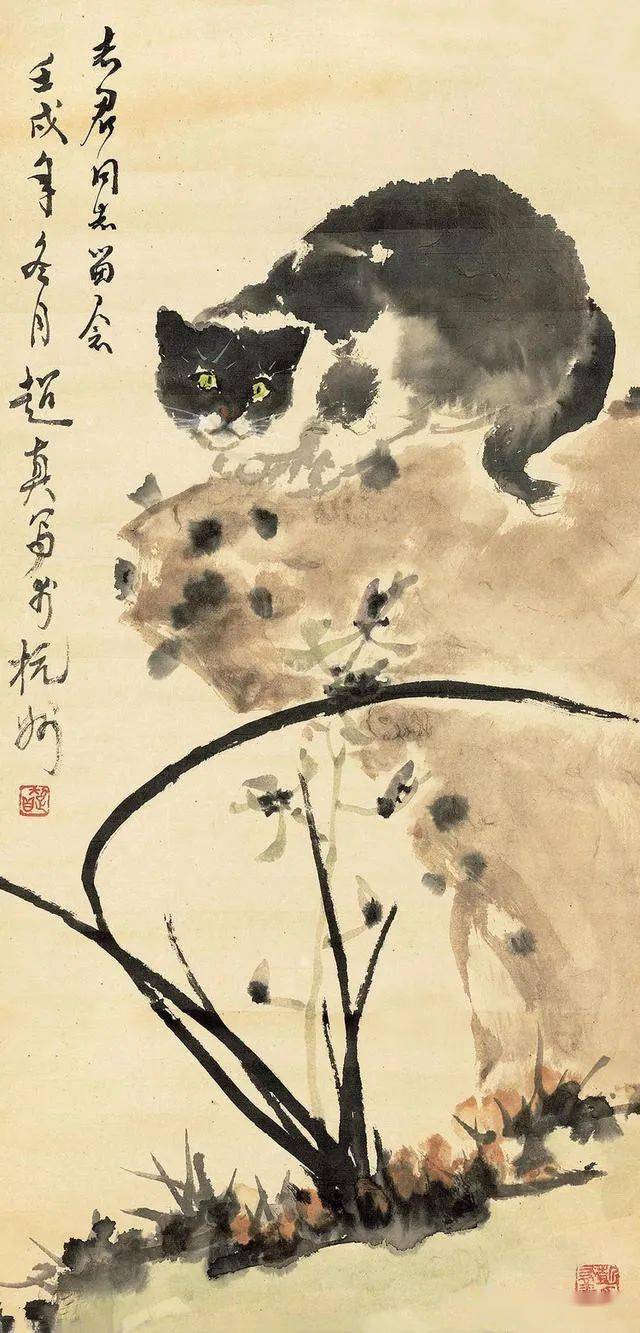 志君同志留念
壬戌年冬月超真写于杭州